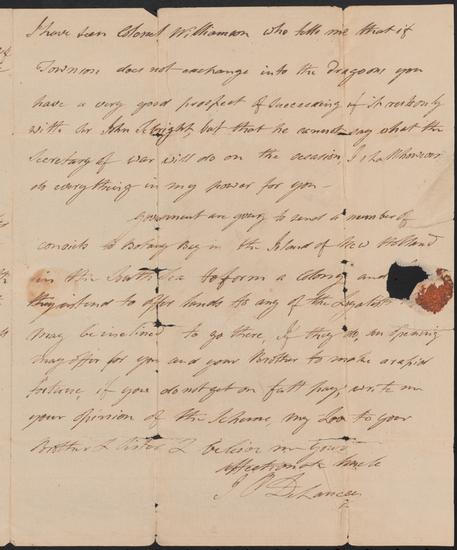 I have seen Colonel Williamson who tells me that if
Townson does not exchange into the Dragoons you
have a very good prospect of succeeding if it rests only
with Sr John Wright, but that he cannot say what the
Secretary of war will do on the occasion, I shall however
do everything in my power for you —
Goverment are going to send a number of
convicts to Botany Bay in the Island of New Holland
in the South Sea to form a Colony and
they intend to offer lands to any of the Loyalists
may be inclined to go there, If they do, an opening
may offer for you and your Brother to make a rapid
fortune, if you do not get on full pay, write me
your opinion of the scheme, my Love to your
Brother & Sister & believe me Your
affectionate Uncle
J P DeLancey